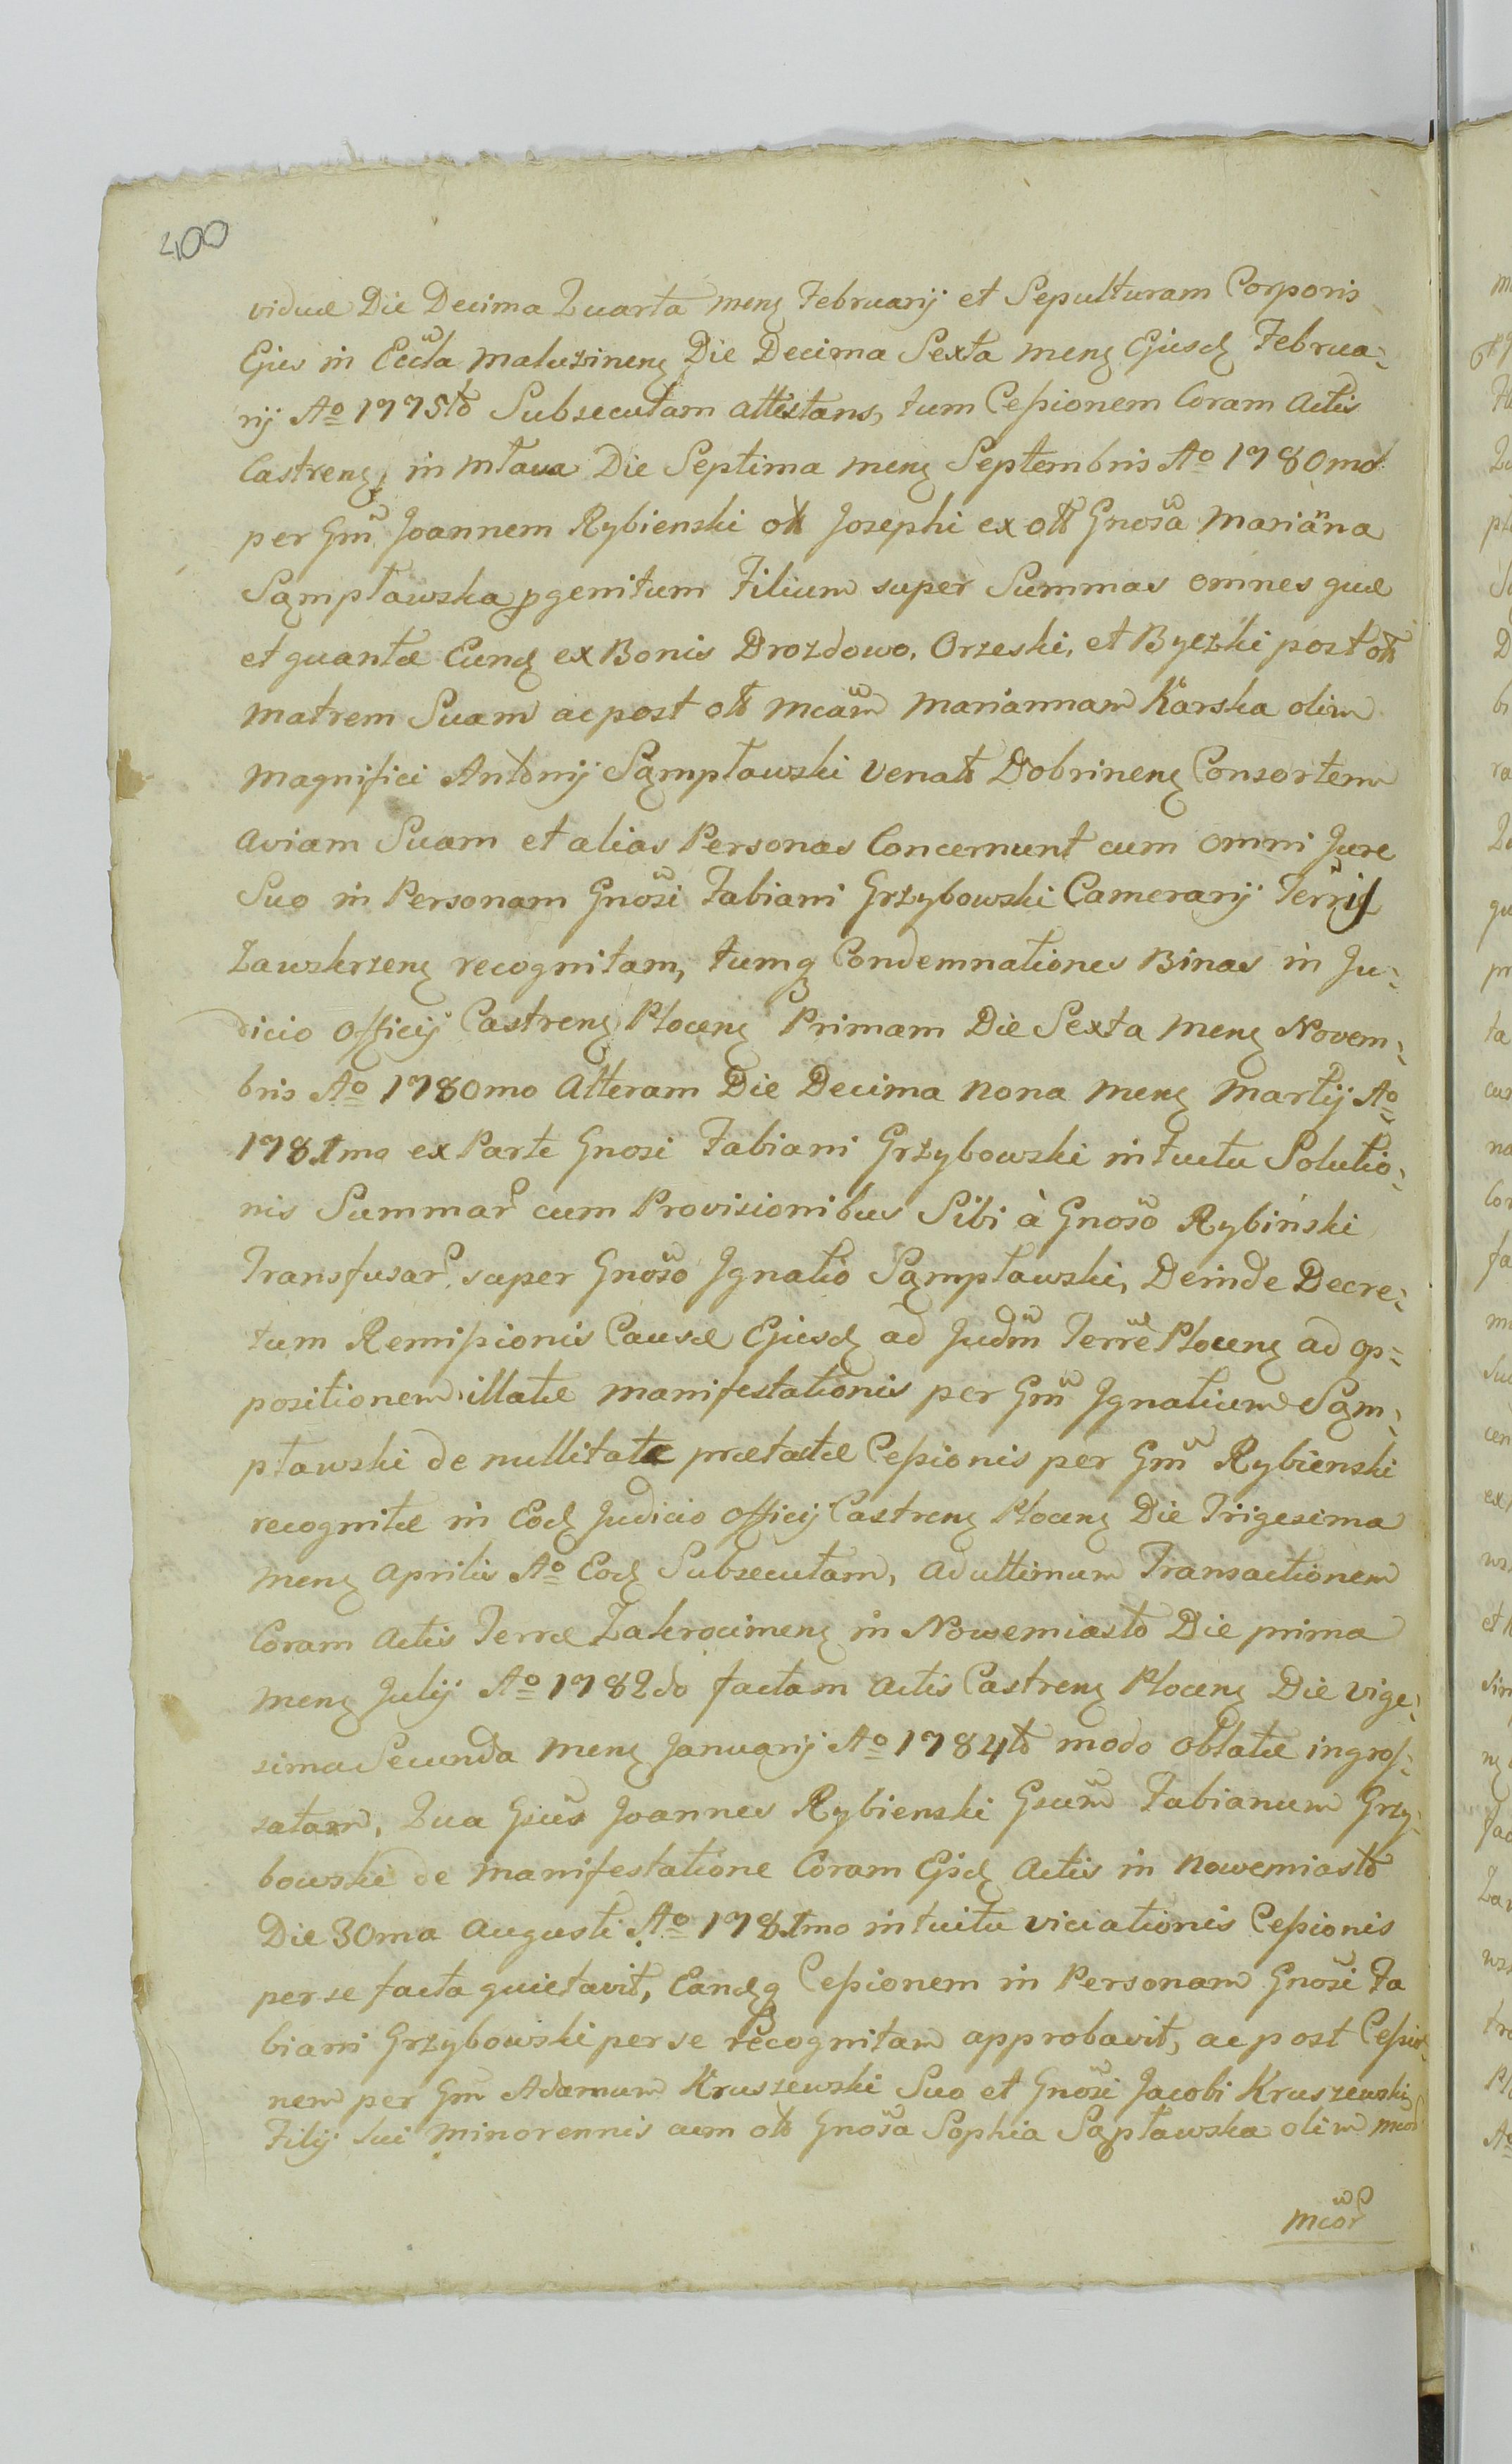 400
viduæ Die Decima Quarta mens Februarij et Sepulturam Corporis
Ejus in Eccla Maluzinens Die Decima Sexta mens Ejusd Februa=
rij Ao 1775to Subsecutam attestans, tum Cessionem Coram Actis
Castrens, in Mława Die Septima mens Septembris Ao 1780mo
per Gm Joannem Rybienski olt Josephi ex olt Gnosa Marianna
Sąmpławska pgenitum Filium super Summas omnes quæ
et quantæ Eund ex Bonis Drozdowo, Orzeski, et Byezki post olt
Matrem Suam ac post olt Mcam Mariannam Karska olim
Magnifici Antonij Sąmpławski Venat Dobrinens Consortem
Aviam Suam et alias Personas Concernunt cum omni Jure
Suo in Personam Gnosi Fabiani Grzybowski Camerarij Terris
Zawskrzens recognitam, tumq Condemnationes Binas in Ju=
dicio Officij Castrens Plocens Primam Die Sexta mens Novem=
bris Ao 1780mo Alteram Die Decima nona mens Martij Ao
1781mo ex Parte Gnosi Fabiani Grzybowski intuitu Solutio=
nis Summar cum Provisionibus Sibi à Gnoso Rybiński
Transfusar, super Gnoso Ignatio Sąmpławski, Deinde Decre=
tum Remissionis Causæ Ejusd ad Judm Terre Plocens ad op=
positionem illatæ manifestationis per Gm Ignatium Sąm=
pławski de nullitate prætactæ Cessionis per Gm Rybienski
recognitæ in Eod Judicio Officij Castrens Plocens Die Trigesima
mens Aprilis Ao Eod Subsecutam, ad ultimum Transactionem
Coram Actis Terræ Zakrocimens in Nowemiasto Die prima
mens Julij Ao 1782do factam Actis Castrens Plocens Die vige=
sima Secunda mens Januarij Ao 1784to modo oblatæ ingros=
satam, Qua Gsus Joannes Rybienski Gsum Fabianum Grzy=
bowski de manifestatione Coram Eisd Actis in Nowemiasto
Die 30ma Augusti Ao 1781mo intuitu viciationis Cessionis
per se facta quietavit, Eandq Cessionem in Personam Gnosi Fa
biani Grzybowski per se recognitam approbavit, ac post Cessio=
nem per Gm Adamum Kruszewski Suo et Gnosi Jacobi Kruszewski
Filij sui minorennis cum olt Gnosa Sophia Sąpławska olim Mcor
Mcor